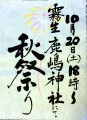 10月20日(土)18時〜
霧生鹿嶋神社にて
秋祭り